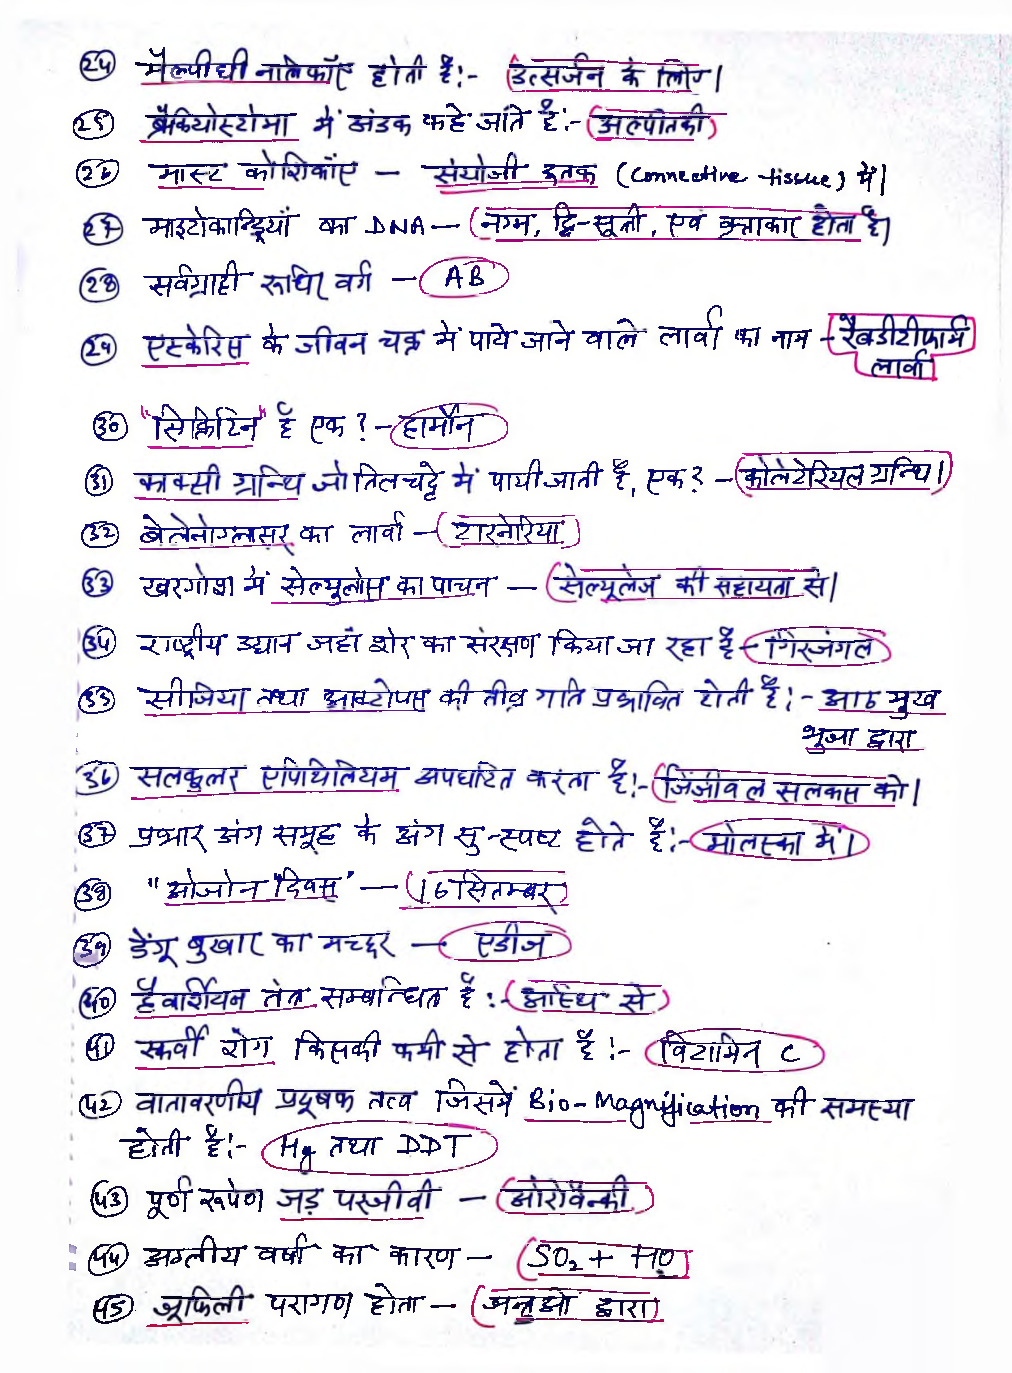 24 मैल्पीघी नलिकाएँ होती है:- उत्सर्जन के लिए।
25 ब्रैकियोस्टोमा में अंडक कहे जाते हैं:- अल्पीतकी
26 मास्ट कोशिकाँए – संयोजी ऊतक (connective tissue) में।
27 माइटोकान्ड्रियाँ का DNA – नग्न, द्वि-सूत्री, एवं वृत्ताकार होता है।
28 सर्वग्राही रूधिर वर्ग – AB
29 एस्केरिस के जीवन चक्र में पाये जाने वाले लार्वा का नाम – रैबडीटीफार्म
लार्वा
30 "सिक्रिटिन" है एक? – हार्मोन
31 काक्सी ग्रन्थि जो तिलचट्टे में पायी जाती है, एक? – कोलेटेरियल ग्रन्थि।
32 बेलेनोग्लासस् का लार्वा – टारनेरिया
33 खरगोश में सेल्युलोस का पाचन – सेल्यूलेज की सहायता से।
34 राष्ट्रीय उद्यान जहाँ शेर का संरक्षण किया जा रहा है – गिरजंगल
35 सीजिया तथा आक्टोपस की तीव्र गति प्रभावित होती है:- आठ मुख
भूजा द्वारा
36 सलकुलर एपिथिलियम अपघटित करता है:- जिंजीवल सलकस को।
37 प्रभार अंग समूह के अंग सु-स्पष्ट होते है:- मोलस्का में।
38 "ओजोन दिवस" – 16 सितम्बर
39 डेंगू बुखार का मच्छर – एडीज
40 हैवर्शियन तंत्र सम्बन्धित है:- अस्थि से
41 स्कर्वी रोग किसकी कमी से होता है:- विटामिन C
42 वातावरणीय प्रदूषक तत्व जिसमें Bio-Magnification की समस्या
होती है:- Hg तथा DDT
43 पूर्ण रूपेण जड़ परजीवी – ओरोबैन्की
44 अम्लीय वर्षा का कारण – SO₂ + HO
45 जूफिली परागण होता – जन्तुओ द्वारा